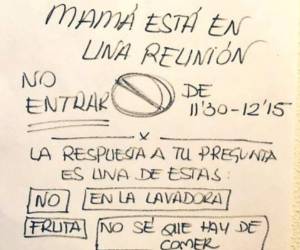 MAMÁ ESTÁ EN
UNA REUNIÓN
NO
ENTRAR
DE
11'30-12'15
x
LA RESPUESTA A TU PREGUNTA
ES UNA DE ESTAS:
NO EN LA LAVADORA
FRUTA NO SÉ QUE HAY DE
COMER